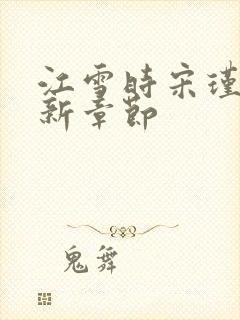 江雪时宋瑾
新章节
鬼舞